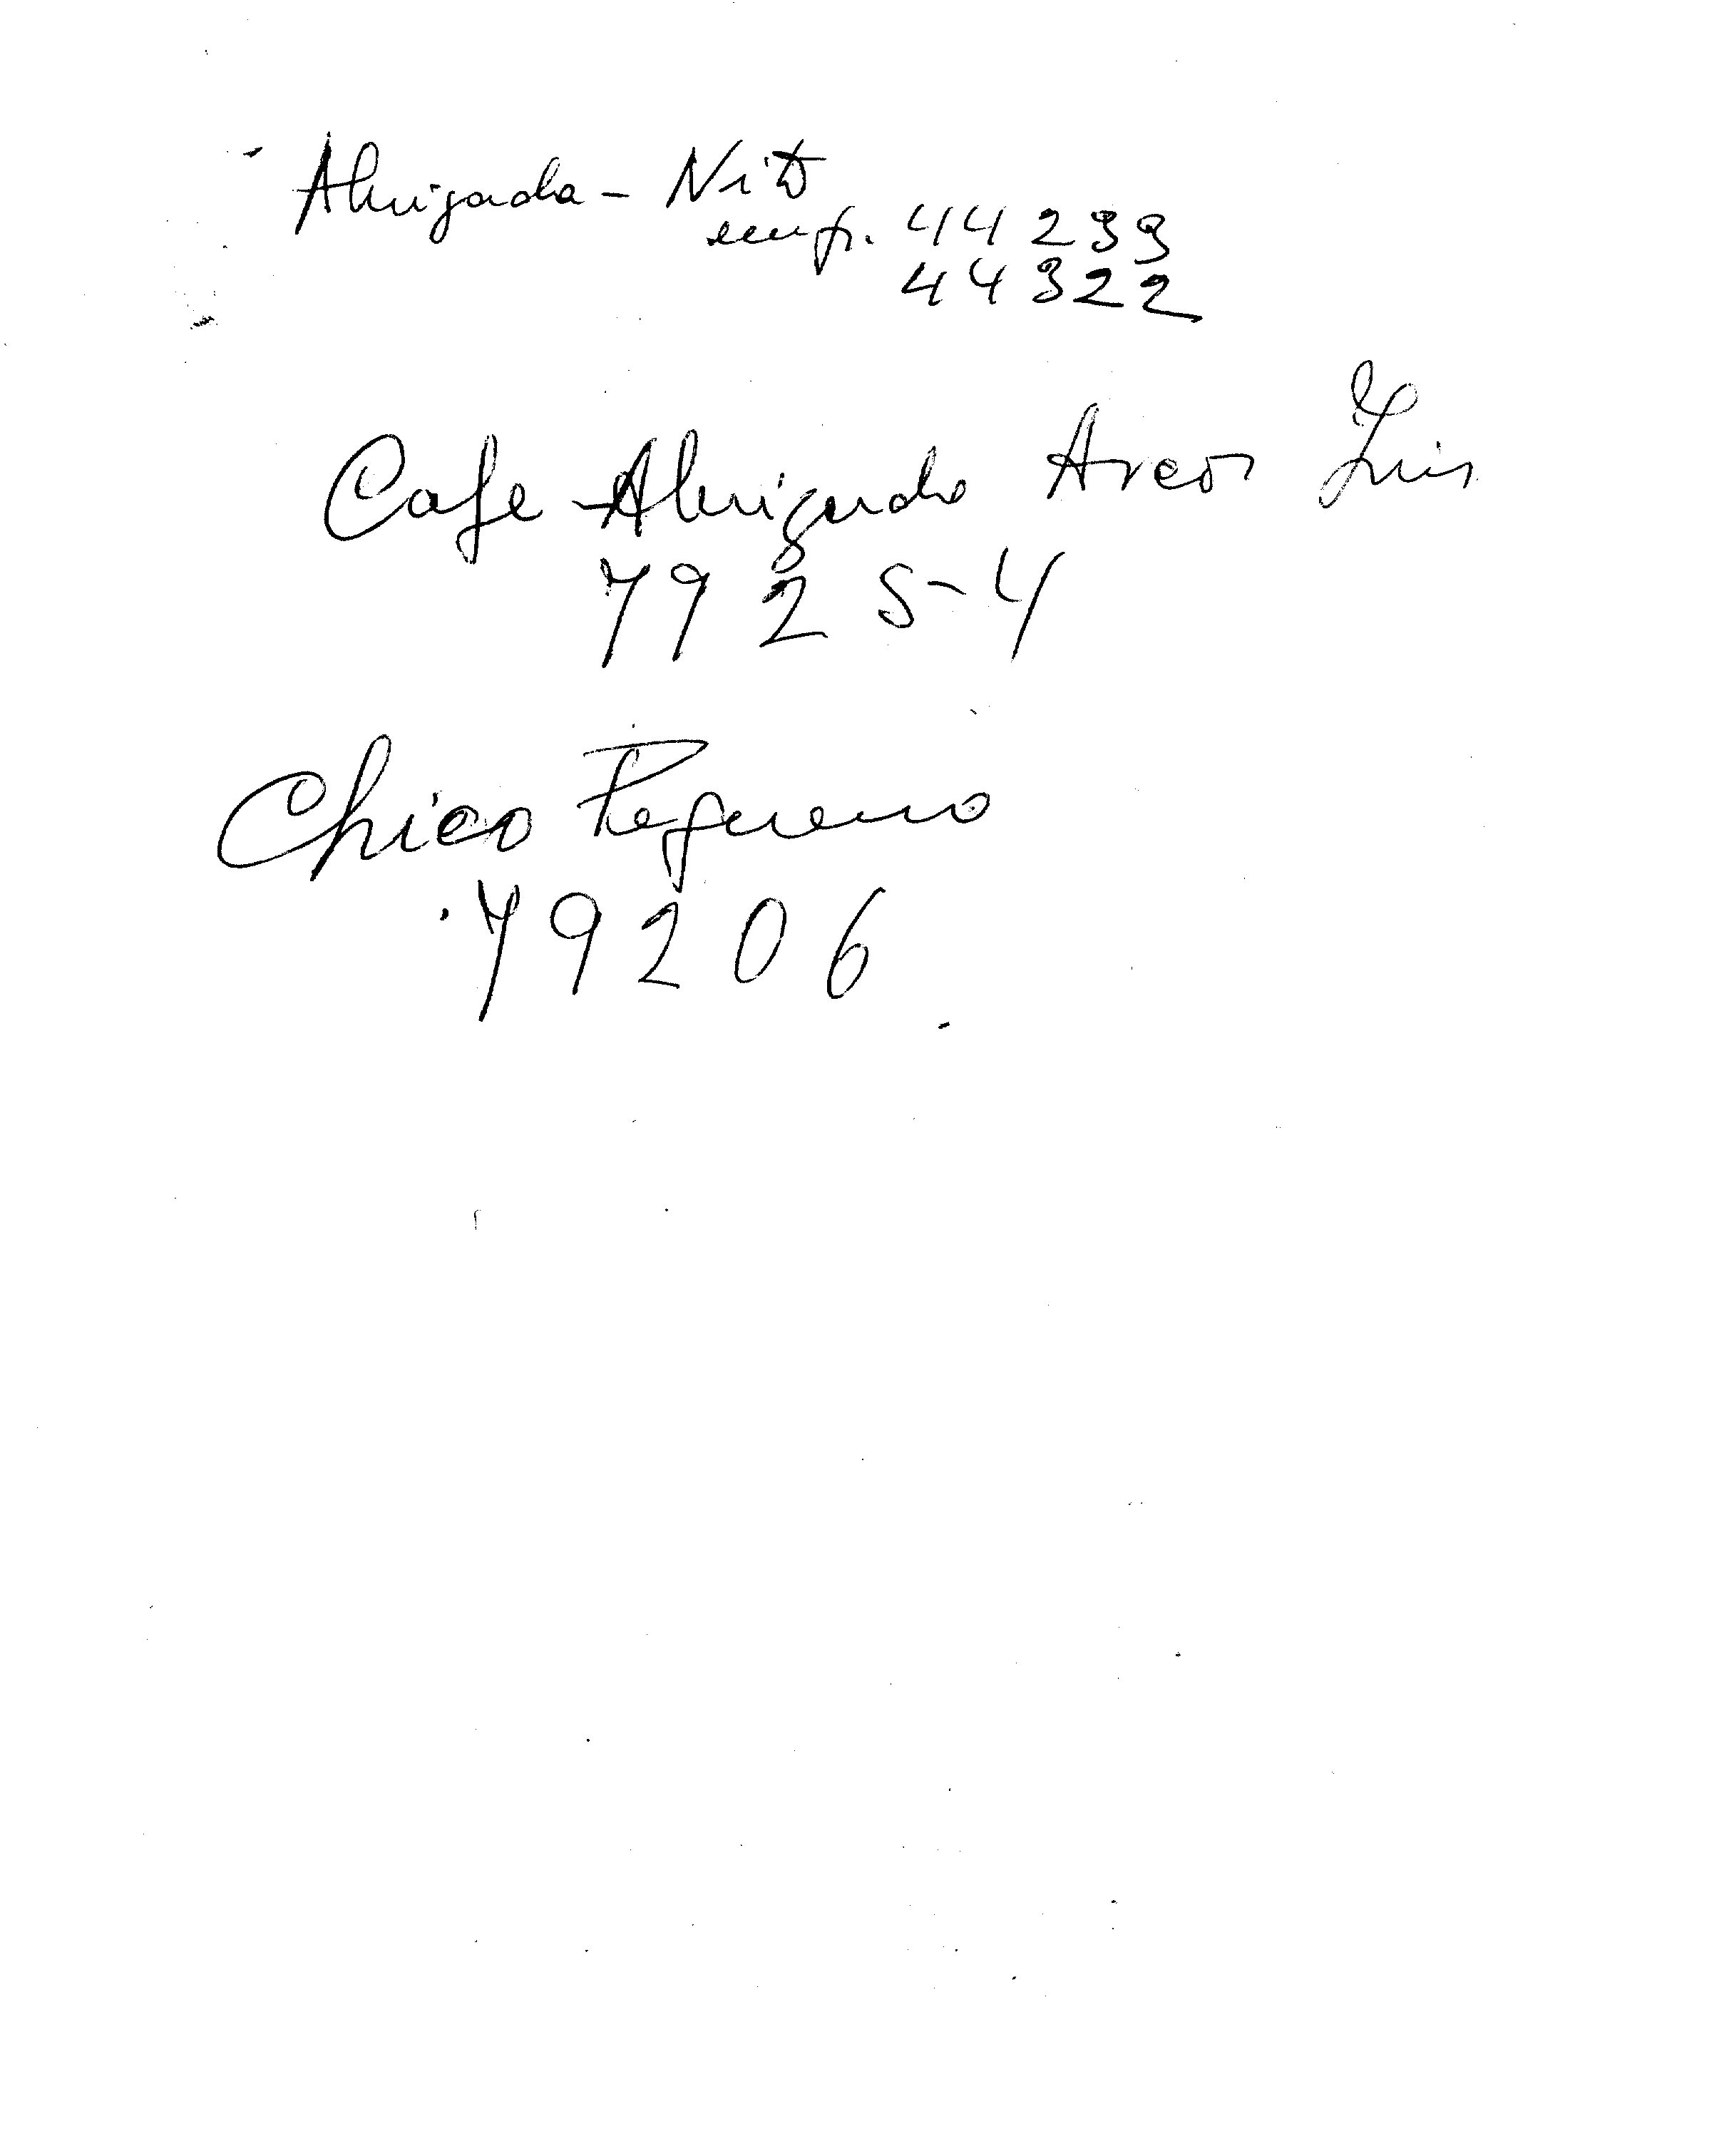 Abrigada - Nitº
emp. 44 239
44322
Cafe Abrigada Arcos Luis
79254
Chico Pequeno
79206